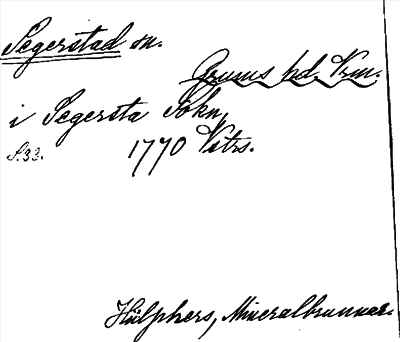 Segerstad sn.
Grums hd. Vrm.
i Segersta Sokn
S. 33.
1770 Vstrs.
Hülphers, Mineralbrunnar.